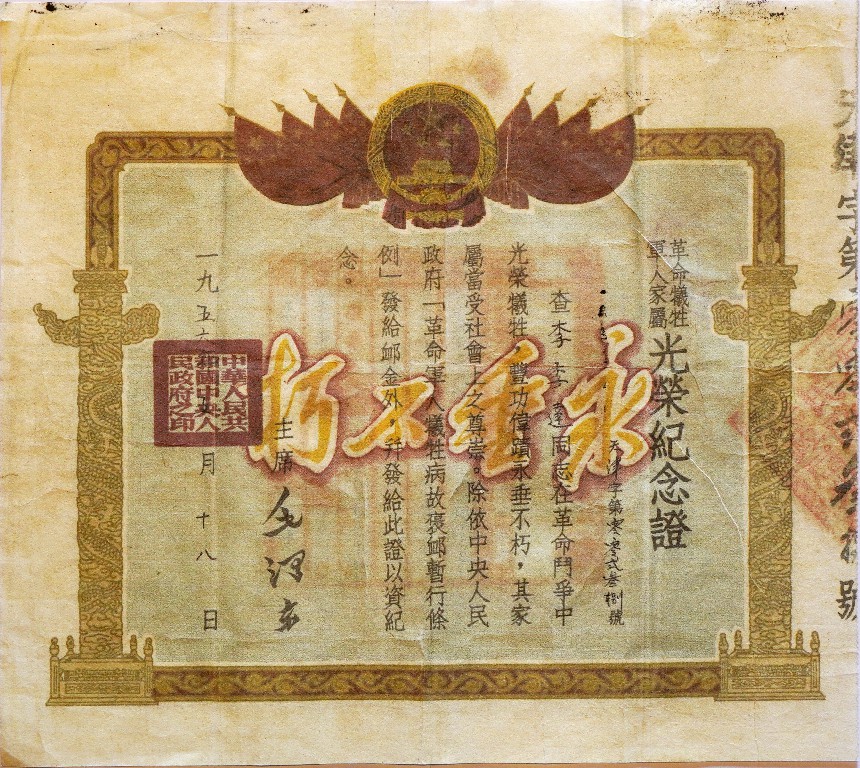 天津字第零零弍叁捌號
革命犧牲
軍人家屬
光榮紀念證
天津字第零零弍叁捌號
查李李蓮同志在革命鬥爭中
光榮犧牲,豐功偉蹟永垂不朽,其家
屬當受社會上之尊崇。除依中央人民
政府「革命軍人犧牲病故褒卹暫行條
例」發給卹金外,幷發給此證以資紀
念。
永垂不朽
主席 毛澤東
一九五六 月十八日
中華人民共
和國中央人
民政府之印